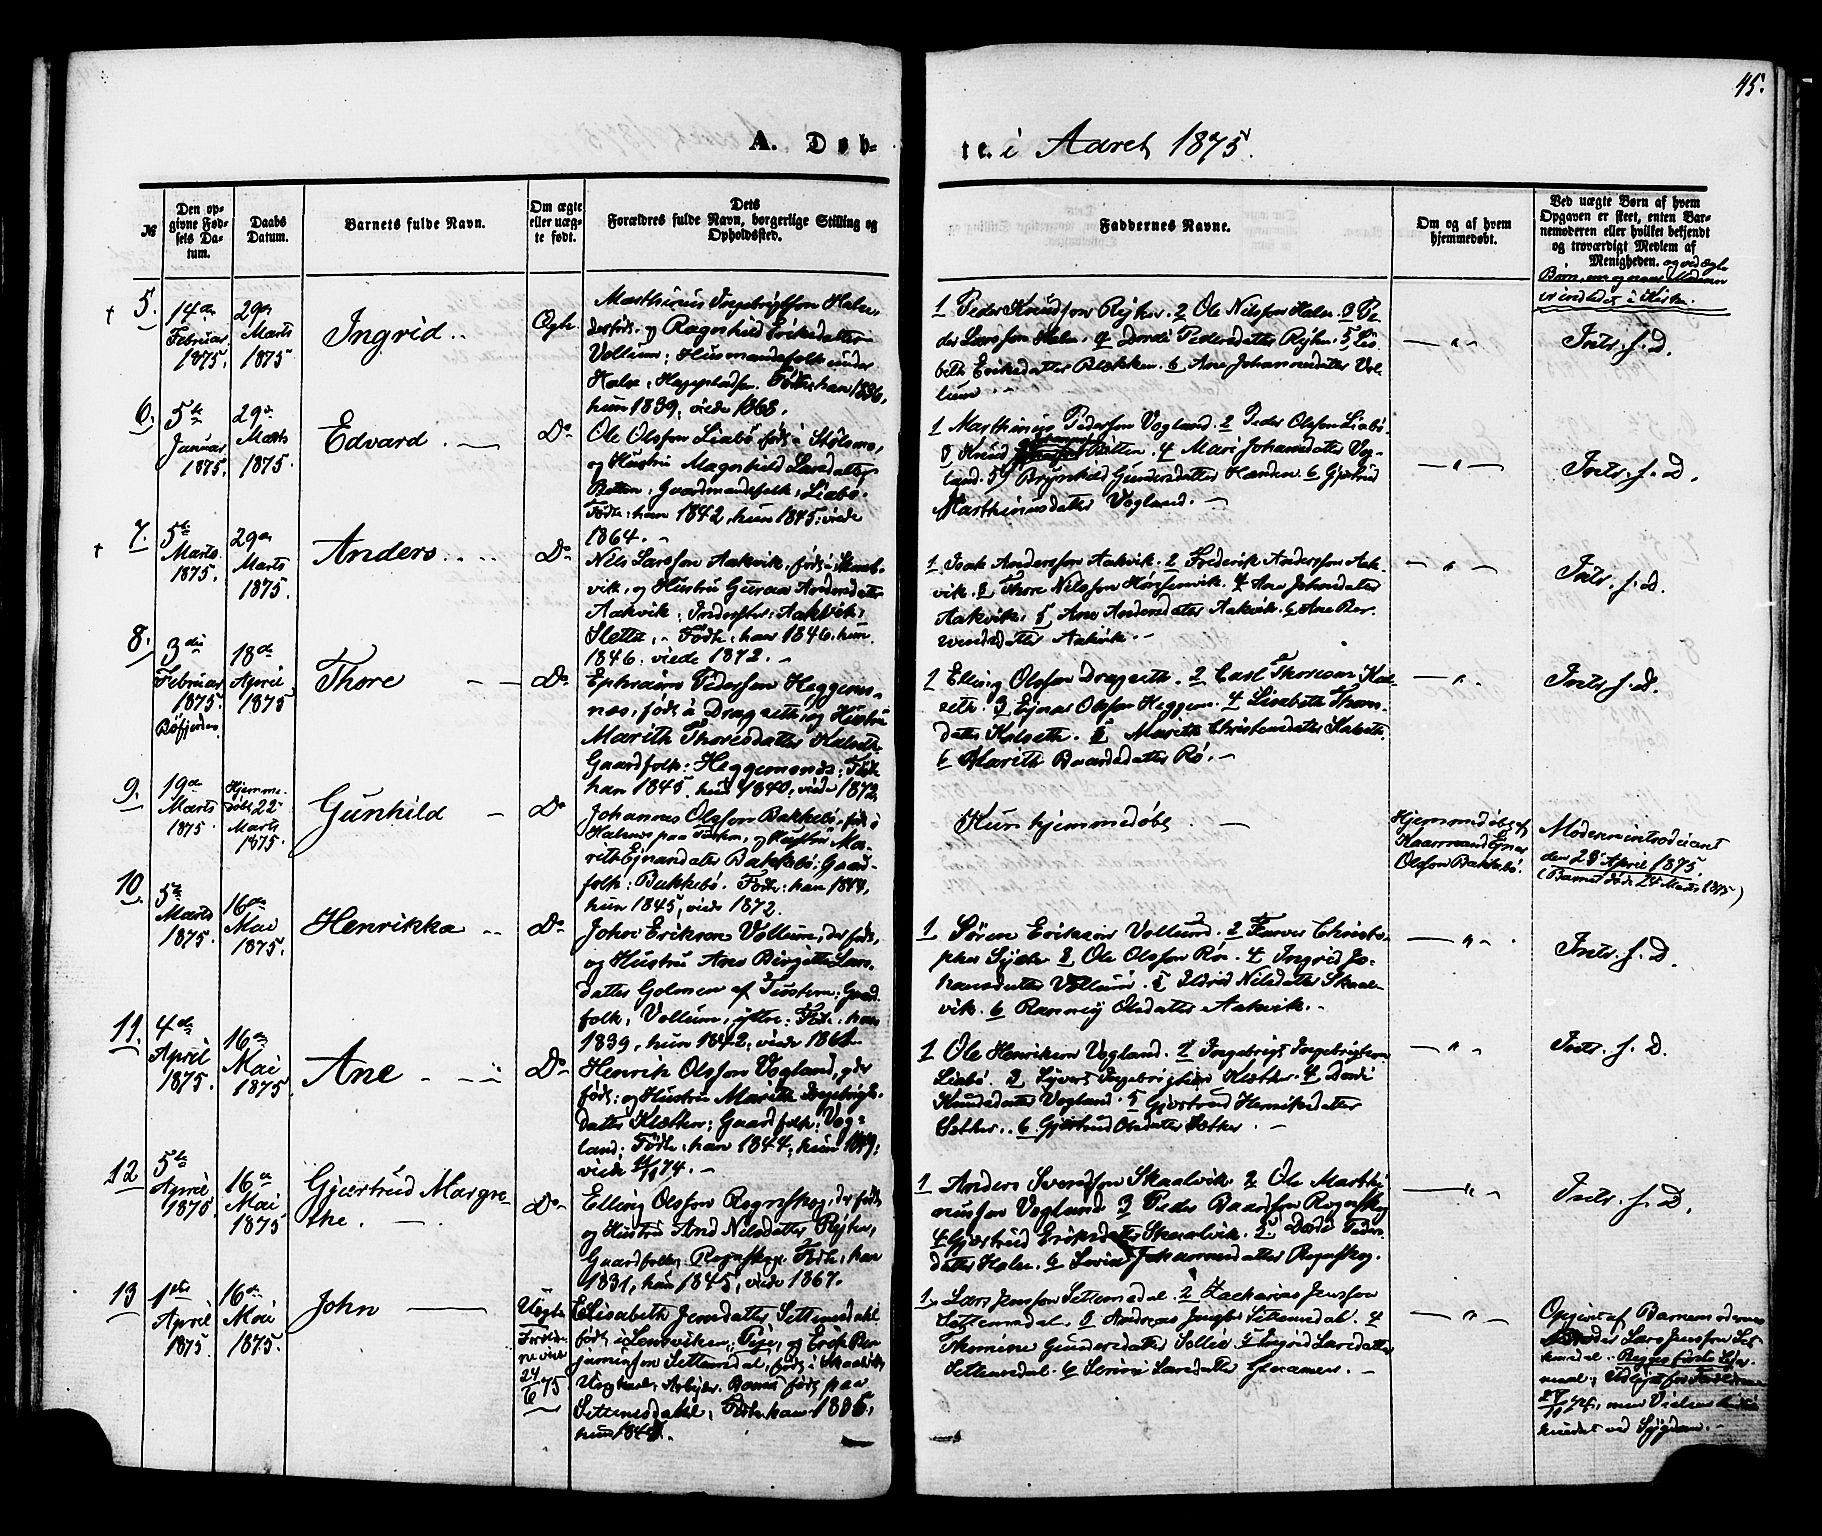 45.
A. Døb-
te. i Aaret 1875.
№
Den op-
givne Fød-
sels Da-
tum.
Daabs
Datum.
Barnets fulde Navn.
Om ægte
eller uæg-
te født.
Dets
Forældres fulde Navn, borgerlige Stilling og
Opholdssted.
Faddernes Navne.
Om og af hvem
hjemmedøbt.
Ved uægte Børn af hvem
Opgaven er skeet, enten Bar-
nemoderen eller hvilket bekjendt
og troværdigt Medlem af
Menigheden. og ved ægte
Børn, om og naar Moderen
er indledet i Kirke.
5.
14de
Februar
1875.
29de
Marts
1875
Ingrid
Ægte
Marthinus Ingebrigtson Halse,
derfødt, og Ragnhild Eriksdatter
Vollum; Husmandsfolk under
Halse; Heggepladsen. Fødte: han 1836,
hun 1839; viede 1868.
1 Peder Knudson Rejher. 2 Ole Nilsson Halse. 3 Pe-
der Larsson Halse. 4 Dordi Pedersdatter Rejher. 5 Lis-
beth Eriksdatter Blekken. 6 Ane Johannesdatter Vol-
lum
— " —
Intr. f. D.
6.
5te
Januar
1875.
29de
Marts
1875.
Edvard. —
Do
Ole Olsson Liabø, født i Stølsmo,
og Hustru Magnhild Larsdatter
Botten; Gaardmandsfolk; Liabø.
Fødte: han 1842, hun 1845; viede
1864.
1 Marthinus Pederson Vogland. 2 Peder Olsson Liabø.
3 Knud Botten. 4 Mari Johansdatter Vog-
land. 5 Brynhild Gundersdatter Hœnden. 6 Gjertrud
Marthinusdatter Vogland. —
— " —
Intr. f. D.
7.
5te
Marts
1875.
29de
Marts
1875.
Anders
Do
Nils Larsson Aakvik, født i Skaal-
vik, og Hustru Guroa Andersdatter
Aakvik; Inderster; Aakvik;
Sletta. Fødte: han 1846, hun
1846; viede 1872. —
1 Isak Andersson Aakvik. 2 Frederik Andersson Aak-
vik. 3 Thore Nilsson Henjemvik. 4 Ane Johnsdatter
Aakvik. 5 Ane Andersdatter Aakvik. 6 Ane Ber-
Aakvik. —
— " —
Intr. f. D.
8.
3die
Februar
1875.
18de
April
1875
Thore — —
Do
Ephraim Pederson Heggems-
nes, født i Drageseth, og Hustru
Marith Thoresdatter Kalseth;
Gaardfolk; Heggemsnes; Fødte
han 1845, hun 1840, viede 1872.
1 Elling Olsson Drageseth. 2 Carl Thoreson Kal-
seth. 3 Ejnar Olsson Heggem. 4 Lisabeth Thores-
datter Kalseth. 5 Marith Christensdatter Kalseth.
6 Marith Baardsdatter Rø. —
— " —
Intr. f. D.
9.
19de
Marts
1875.
Hjemme-
døbt 22de
Marts
1875.
Gunhild —
Do
Johannes Olsson Bakkebø, født i
Halsnes paa Tusteren, og Hustru Ma-
rith Ejnarsdatter Bakkebø; Gaard-
folk; Bakkebø. Fødte: han 1844,
hun 1845, viede 1872.
Kun hjemmedøbt. —
Hjemmedøbt af
Kaarmand Ejnar
Olsson Bakkebø.
Moderen introduceret
den 28de April 1875.
(Barnet døde 24 Marts 1875)
10.
5te
Marts
1875.
16de
Mai
1875.
Henrikka
Do
John Erikson Vollum, der født,
og Hustru Ane Birgitte Lars-
datter Golmen af Tusteren; Gaard-
folk; Vollum, ; Fødte: han
1839, hun 1842; viede 1864
1 Søren Erikson Vollum. 2 Christo-
pher 3 Ole Olsson Rø. 4 Ingrid Jo-
hansdatter Vollum. 5 Eldrid Nilsdatter Skaal-
vik. 6 Rannei Olsdatter Aakvik. —
— " —
Intr. f. D.
11.
4de
April
1875.
16de
Mai
1875
Ane
Do
Henrik Olsson Vogland, der
født; og Hustru Marith Ingebrigts-
datter Klether; Gaardfolk; Vog-
land; Fødte: han 1844, hun 1849;
viede 74. —
1 Ole Henriksen Vogland. 2 Ingebrigt Ingebrigtson
Liabø. 3 Syvert Ingebrigtson Klether. 4 Dordi
Knudsdatter Vogland. 5 Gjertrud Henriksdatter
Sæther. 6 Gjertrud Olsdatter Sæther. —
— " —
Intr. f. D.
12
5te
April
1875.
16de
Mai
1875
Gjertrud Margre-
the. —
Do
Elling Olsson Rognskog, der født,
og Hustru Ane Nilsdatter Rejher,
Gaardfolk; Rognskog. Fødte: han
1831, hun 1845; viede 1867.
1 Anders Svendson Skaalvik. 2 Ole Marthi-
nusson Vogland. 3 Peder Baardson Rognskog
4 Gjertrud Eriksdatter Skaalvik. 5 Dordi Peders-
datter Halse. 6 Johannesdatter Rognskog.
— " —
Intr. f. D.
13
1ste
April
1875
16de
Mai
1875.
John —
Uægte
Foreldre-
ne viede
24/6 75
Elisabeth Jensdatter Settemsdal
født i Lensviken; Pige, og Erik Ben-
jaminson Settemsdal, født i Skaalvik
Ungkarl, Arbejder. Barnet født paa
Settemsdal. Fødte: han 1856,
hun 1844.
1 Lars Jensson Settemsdal. 2 Zacharias Jensson
Settemsdal. 3 Andreas Settemsdal. 4
Thomine Gundersdatter Sollie. 5 Ingrid Larsdatter
Settemsdal. 6 Larsdatter —
— " —
Opgivet af Barnemoderens
Broder Lars Jensson Set-
temsdal. Begges første Leier-
maal;
, men Vielsen
hindret ved Sygdom. —